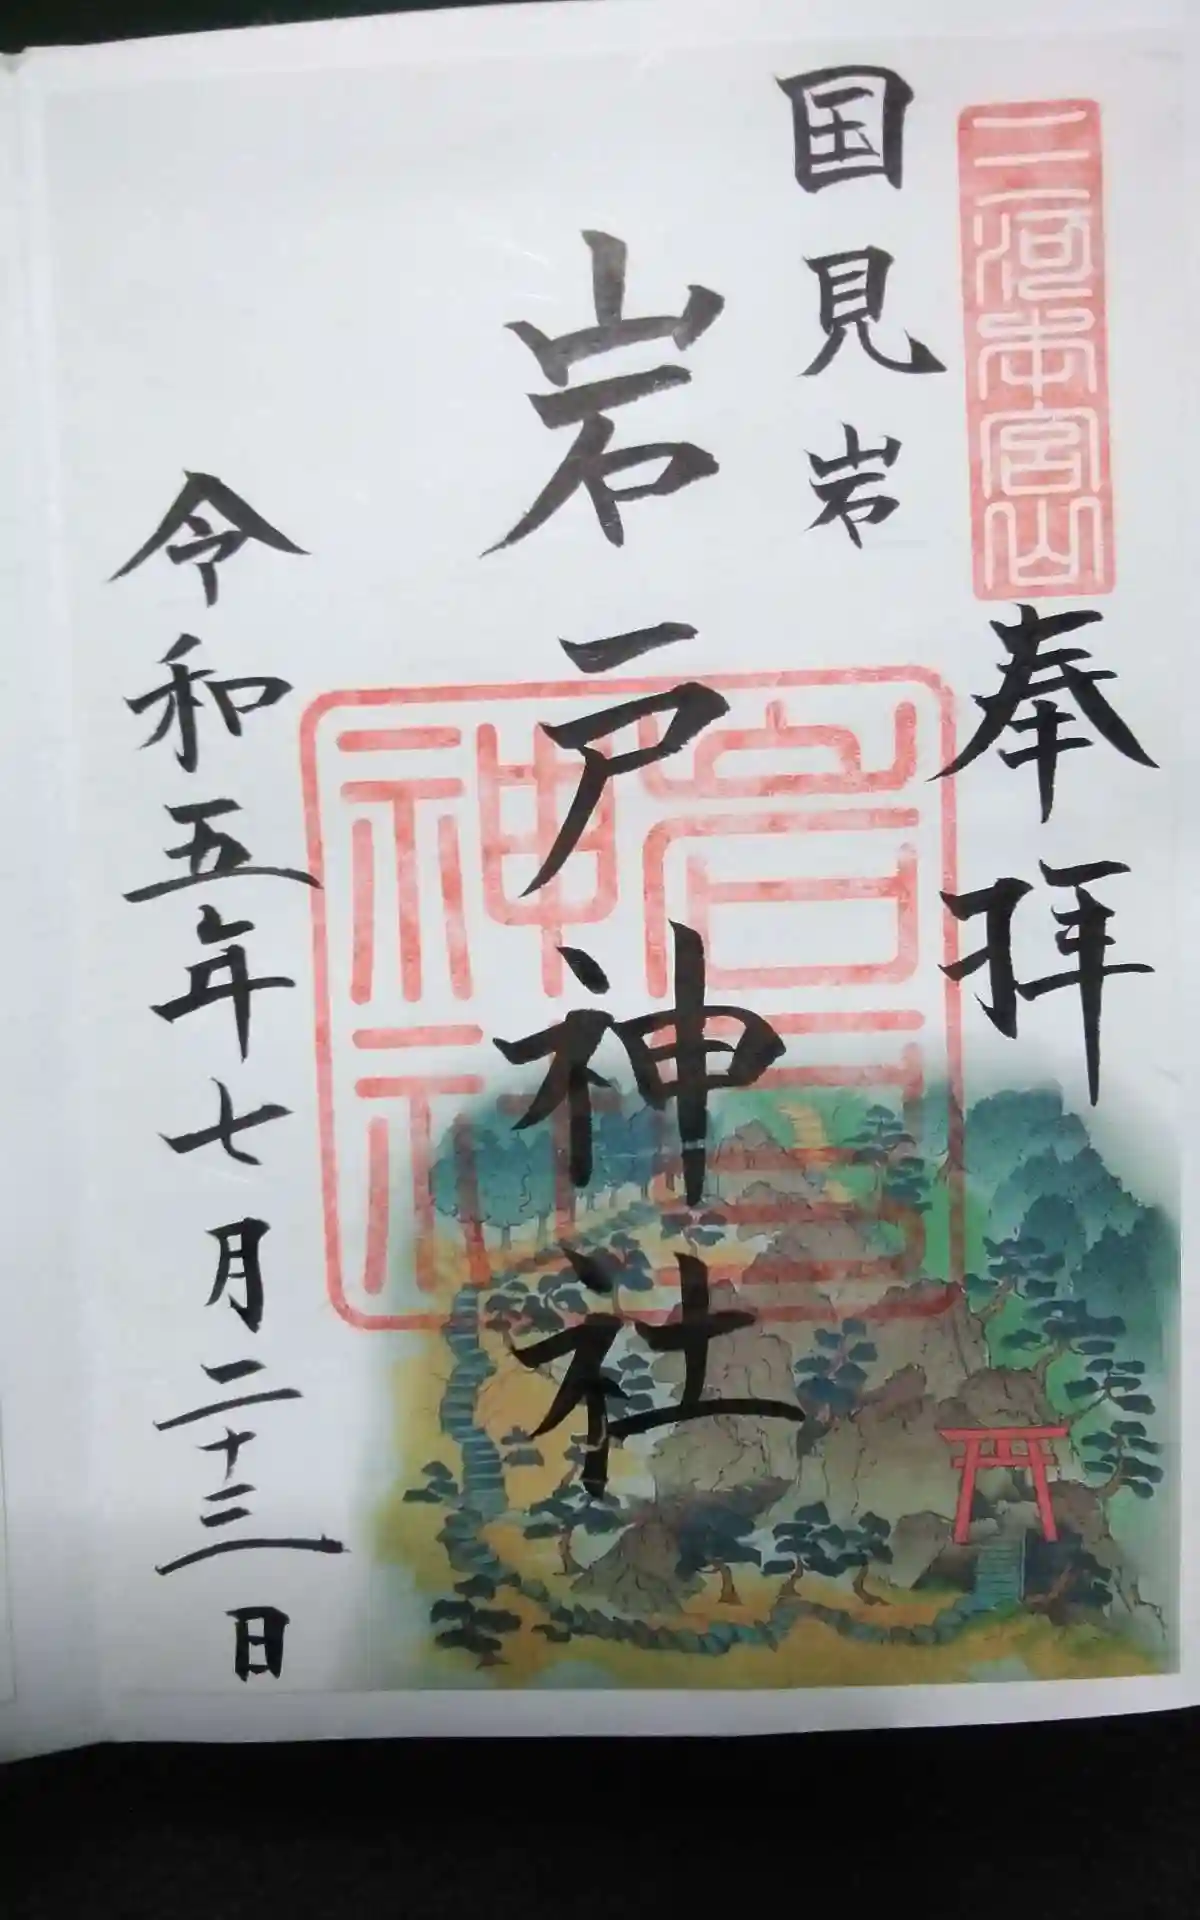 三河本宮山
奉拝
国見岩
岩戸神社
岩戸
神社
令和五年七月二十三日